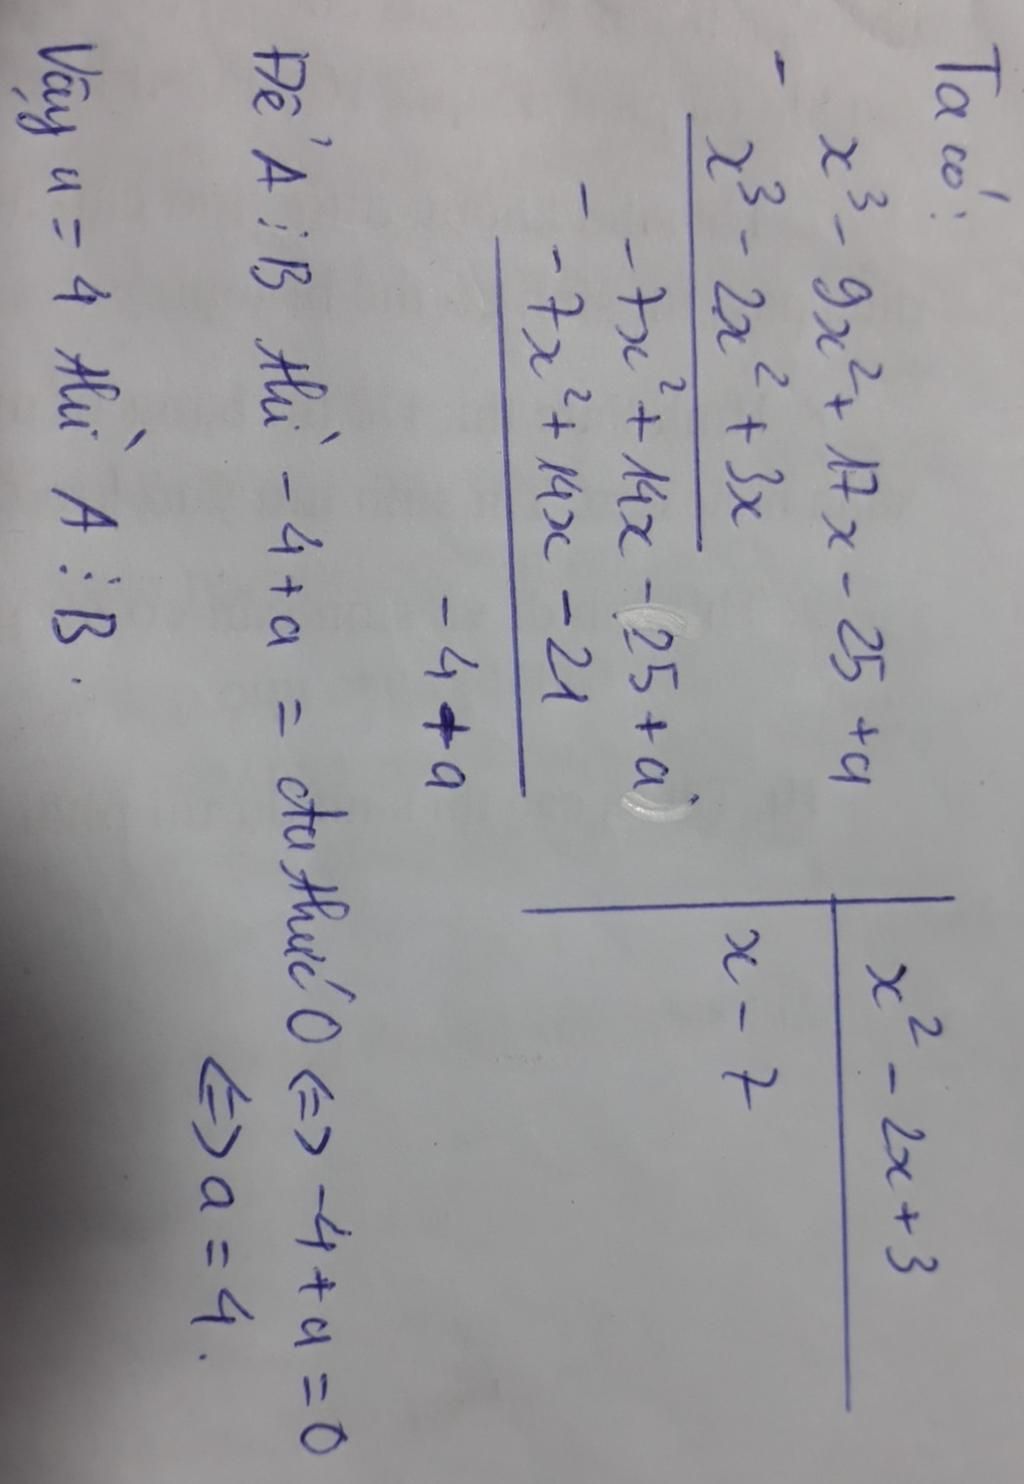 Ta có:
x³ - 9x² + 17x - 25 + a | x² - 2x + 3
-
x³ - 2x² + 3x | x - 7
- 7x² + 14x - 25 + a
-
- 7x² + 14x - 21
- 4 + a
Để A ⋮ B thì - 4 + a = đa thức 0 <=> -4 + a = 0
<=> a = 4.
Vậy a = 4 thì A ⋮ B.